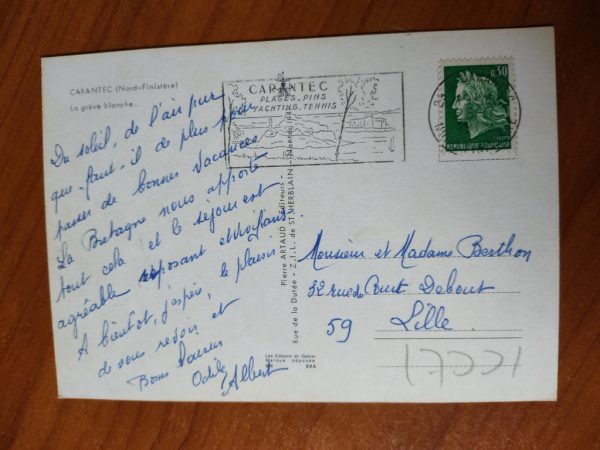 CARANTEC (Nord-Finistère)
La grève blanche.
Du soleil, de l'air pur
que faut-il de plus pour
passer de bonnes vacances
La Bretagne nous apporte
tout cela et le séjour est
agréable reposant et vivifiant
A bientôt, j'espère, le plaisir
de vous revoir et
Bons baisers
Odile Albert
CARANTEC
PLAGES-PINS
YACHTING-TENNIS
0,30
REPUBLIQUE FRANÇAISE
Pierre ARTAUD Editeurs -
Rue de la Dutée - Z.I.L. de ST HERBLAIN - Nantes (44)
Monsieur et Madame Berthon
32 rue du Court Debout
59 Lille
Les Editions du Gabier
Marque déposée
EKA